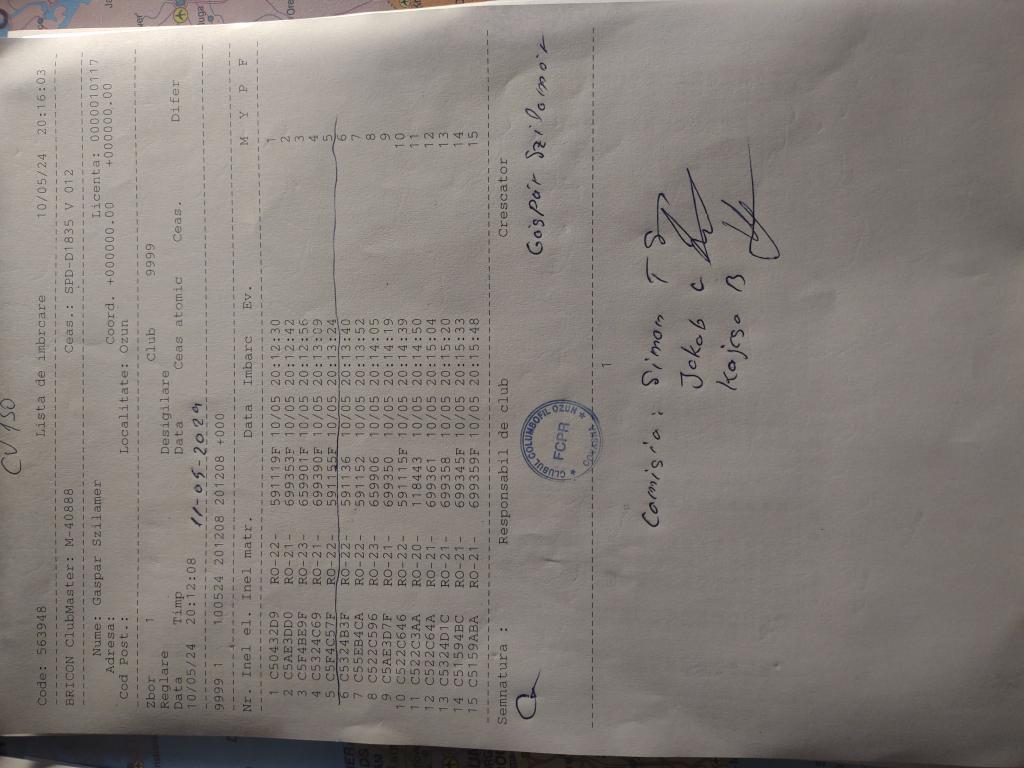 CV 150
Code: 563948 Lista de imbarcare 10/05/24 20:16:03
BRICON ClubMaster: M-40888 Ceas.: SPD-D1835 V 012
Nume: Gaspar Szilamer Licenta: 0000010117
Adresa: Coord. +000000.00 +000000.00
Cod Post.: Localitate: Ozun
Zbor 1 Club 9999
Reglare Desigilare
Data Timp Data Ceas atomic Ceas. Difer
10/05/24 20:12:08 11-05-2024
9999 1 100524 201208 201208 +000
Nr. Inel el. Inel matr. Data Imbarc Ev. M Y P F
1 C50432D9 RO-22- 591119F 10/05 20:12:30 1
2 C5AE3DD0 RO-21- 699353F 10/05 20:12:42 2
3 C5F4BE9F RO-23- 659901F 10/05 20:12:56 3
4 C5324C69 RO-21- 699390F 10/05 20:13:09 4
5 C5F4C57F RO-22- 591132F 10/05 20:13:24 5
6 C5324B3F RO-22- 591136 10/05 20:13:40 6
7 C55EB4CA RO-22- 591152 10/05 20:13:52 7
8 C522C596 RO-23- 659906 10/05 20:14:05 8
9 C5AE3D7F RO-21- 699350 10/05 20:14:19 9
10 C522C646 RO-22- 591115F 10/05 20:14:39 10
11 C522C3AA RO-20- 118443 10/05 20:14:50 11
12 C522C64A RO-21- 699361 10/05 20:15:04 12
13 C5324D1C RO-21- 699358 10/05 20:15:20 13
14 C51594BC RO-21- 699345F 10/05 20:15:33 14
15 C5159ABA RO-21- 699359F 10/05 20:15:48 15
Semnatura : Responsabil de club Crescator
CLUBUL COLUMBOFIL OZUN
FCPR
COVASNA
Gáspár Szilamér
1
Comisia : Simon T S
Jakab C
Kajcsa B